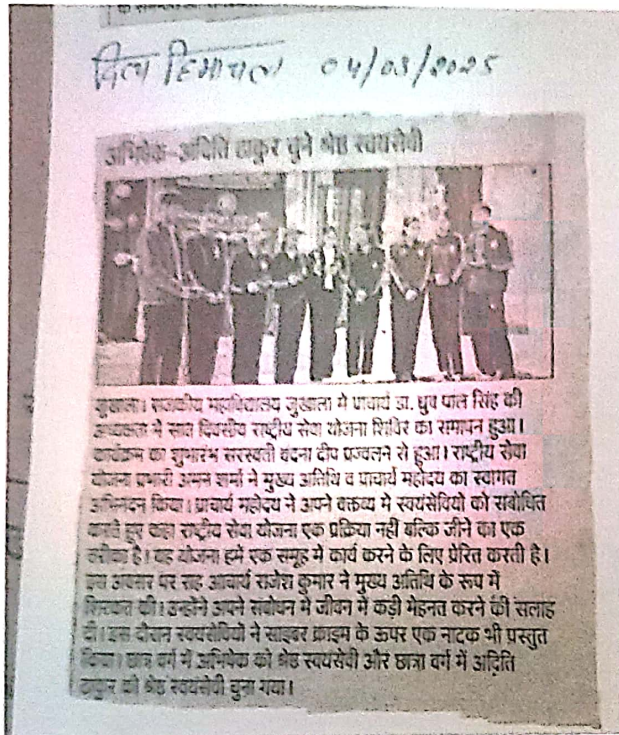 के
दिव्य हिमाचल 04/03/2025
अभिषेक-अदिति ठाकुर चुने श्रेष्ठ स्वयंसेवी
जुखाला। राजकीय महाविद्यालय जुखाला में प्राचार्य डा. ध्रुव पाल सिंह की
अध्यक्षता में सात दिवसीय राष्ट्रीय सेवा योजना शिविर का समापन हुआ।
कार्यक्रम का शुभारंभ सरस्वती वंदना दीप प्रज्वलन से हुआ। राष्ट्रीय सेवा
योजना प्रभारी अमन शर्मा ने मुख्य अतिथि व प्राचार्य महोदय का स्वागत
अभिनंदन किया। प्राचार्य महोदय ने अपने वक्तव्य में स्वयंसेवियों को संबोधित
करते हुए कहा राष्ट्रीय सेवा योजना एक प्रक्रिया नहीं बल्कि जीने का एक
तरीका है। यह योजना हमें एक समूह में कार्य करने के लिए प्रेरित करती है।
इस अवसर पर सह आचार्य राजेश कुमार ने मुख्य अतिथि के रूप में
शिरकत की। उन्होंने अपने संबोधन में जीवन में कड़ी मेहनत करने की सलाह
दी। इस दौरान स्वयंसेवियों ने साइबर क्राइम के ऊपर एक नाटक भी प्रस्तुत
किया। छात्र वर्ग में अभिषेक को श्रेष्ठ स्वयंसेवी और छात्रा वर्ग में अदिति
ठाकुर को श्रेष्ठ स्वयंसेवी चुना गया।